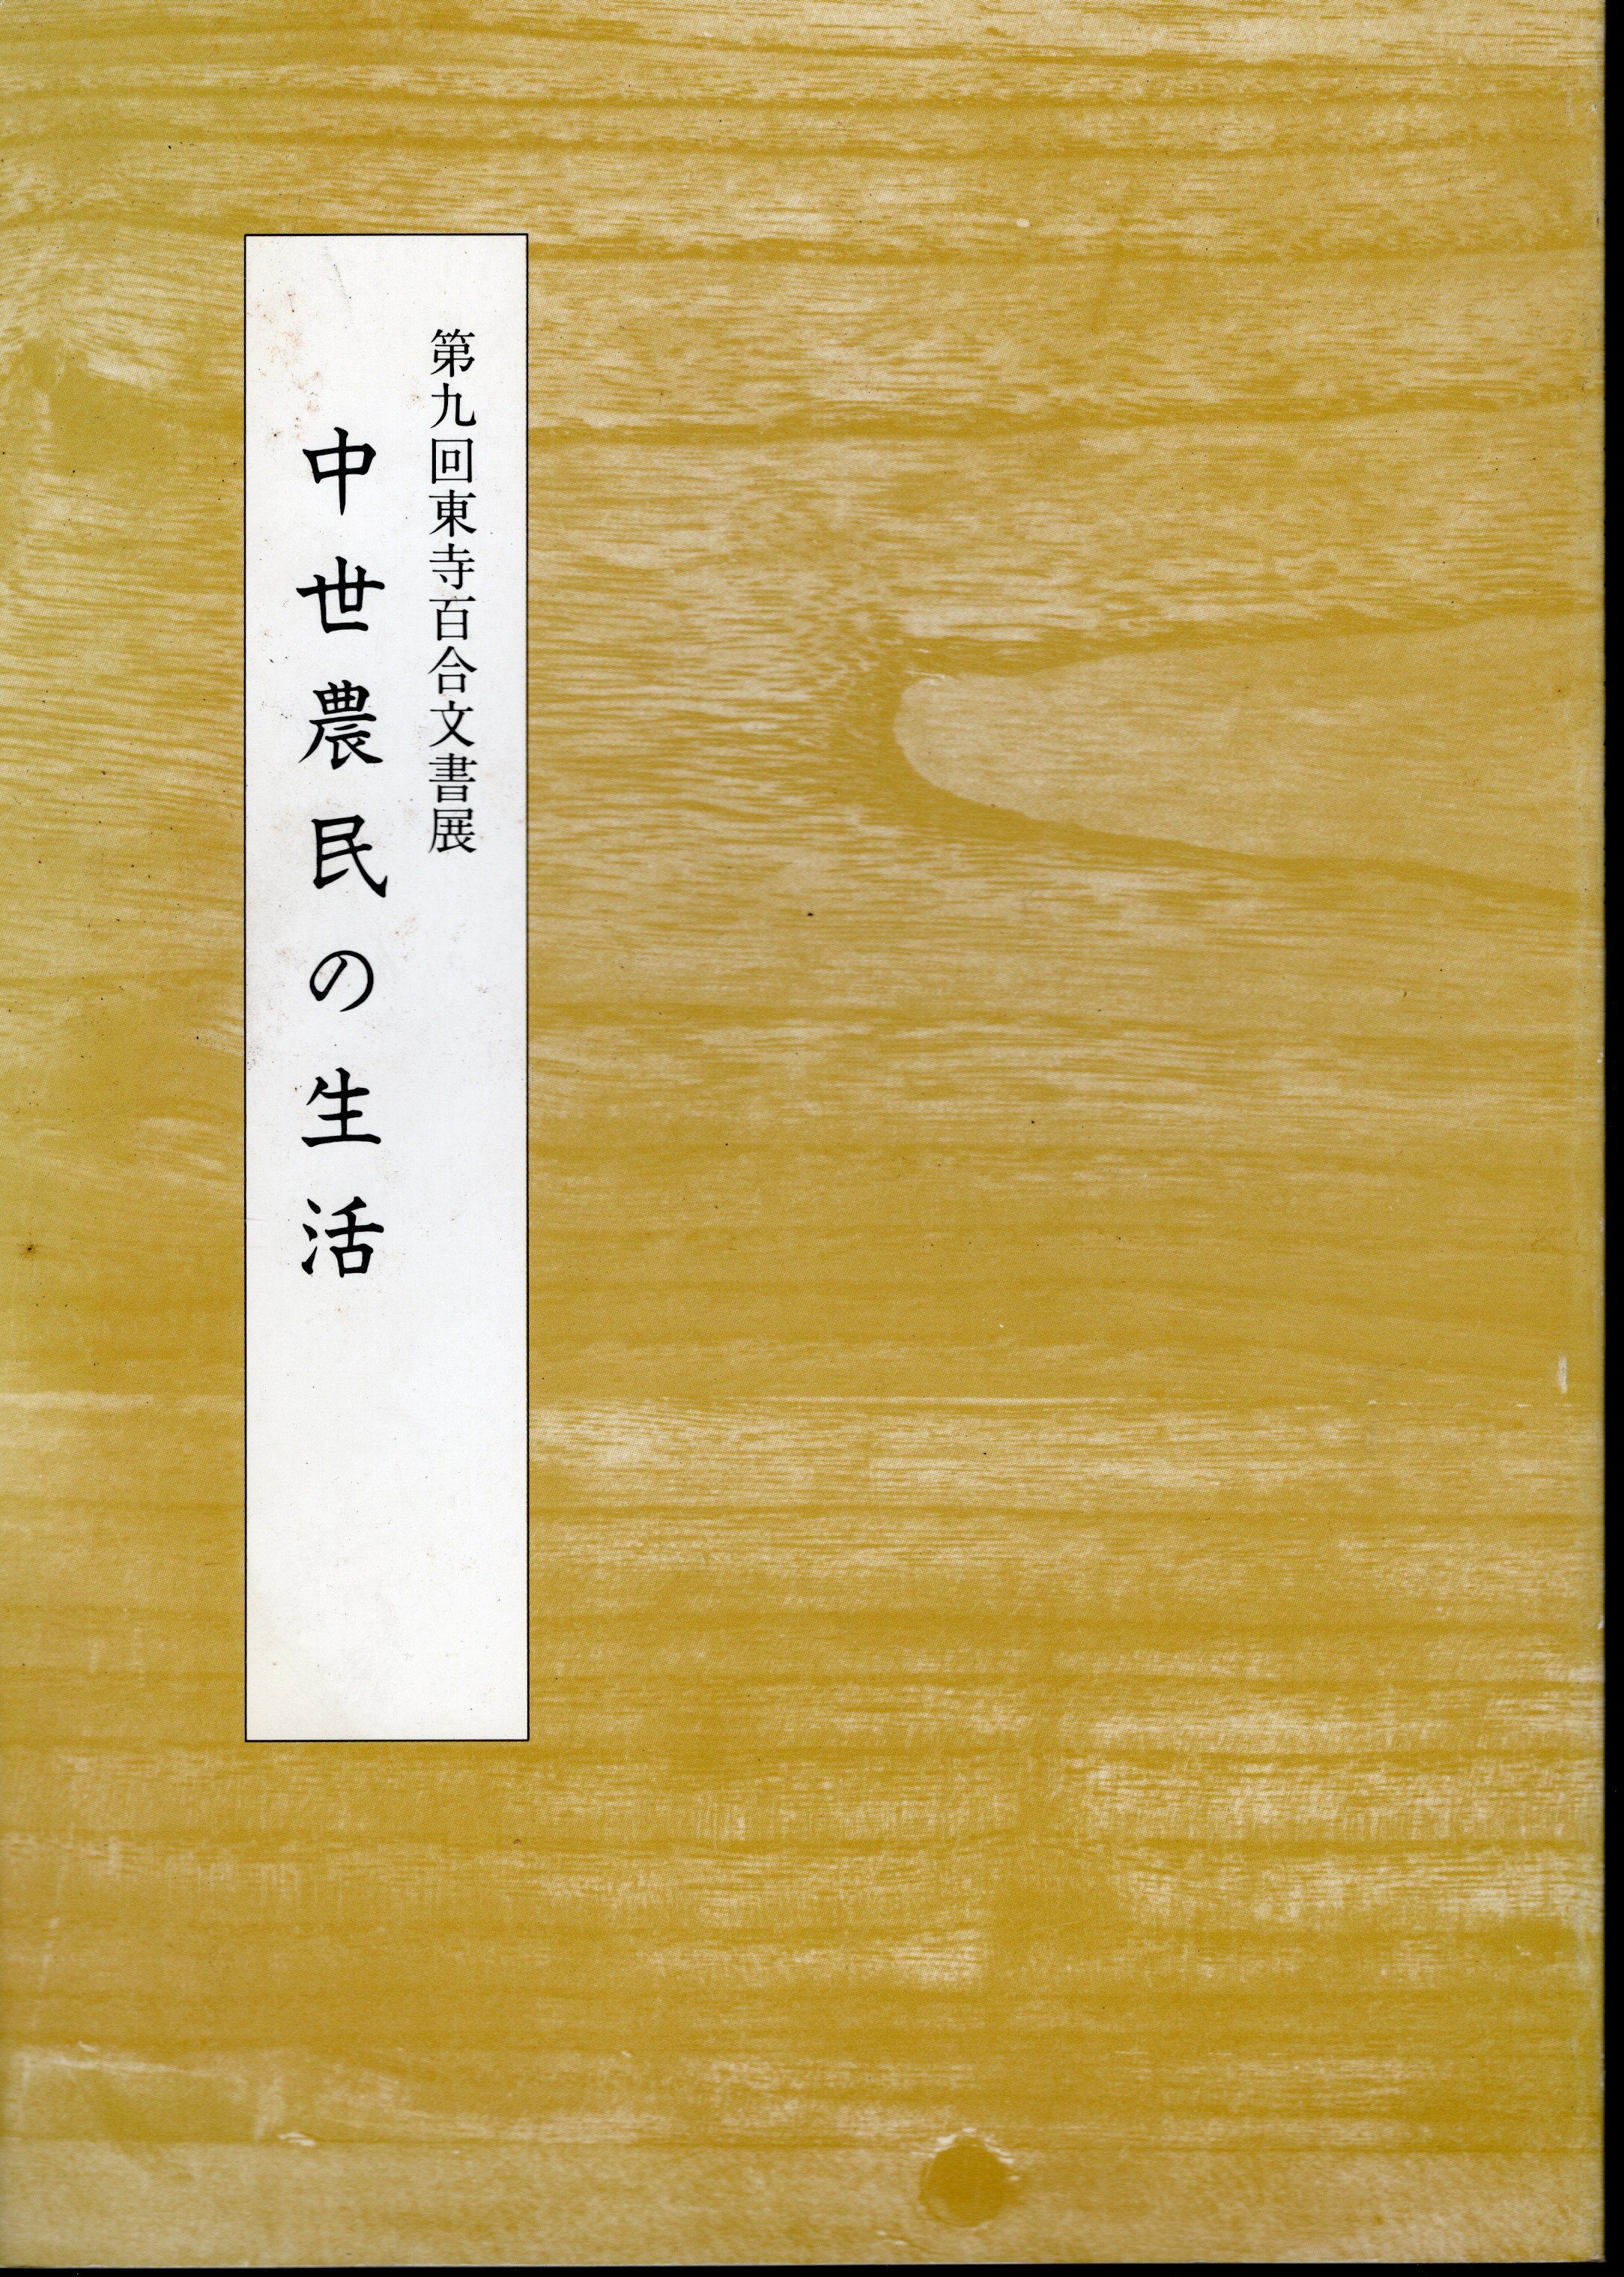 第九回東寺百合文書展
中世農民の生活